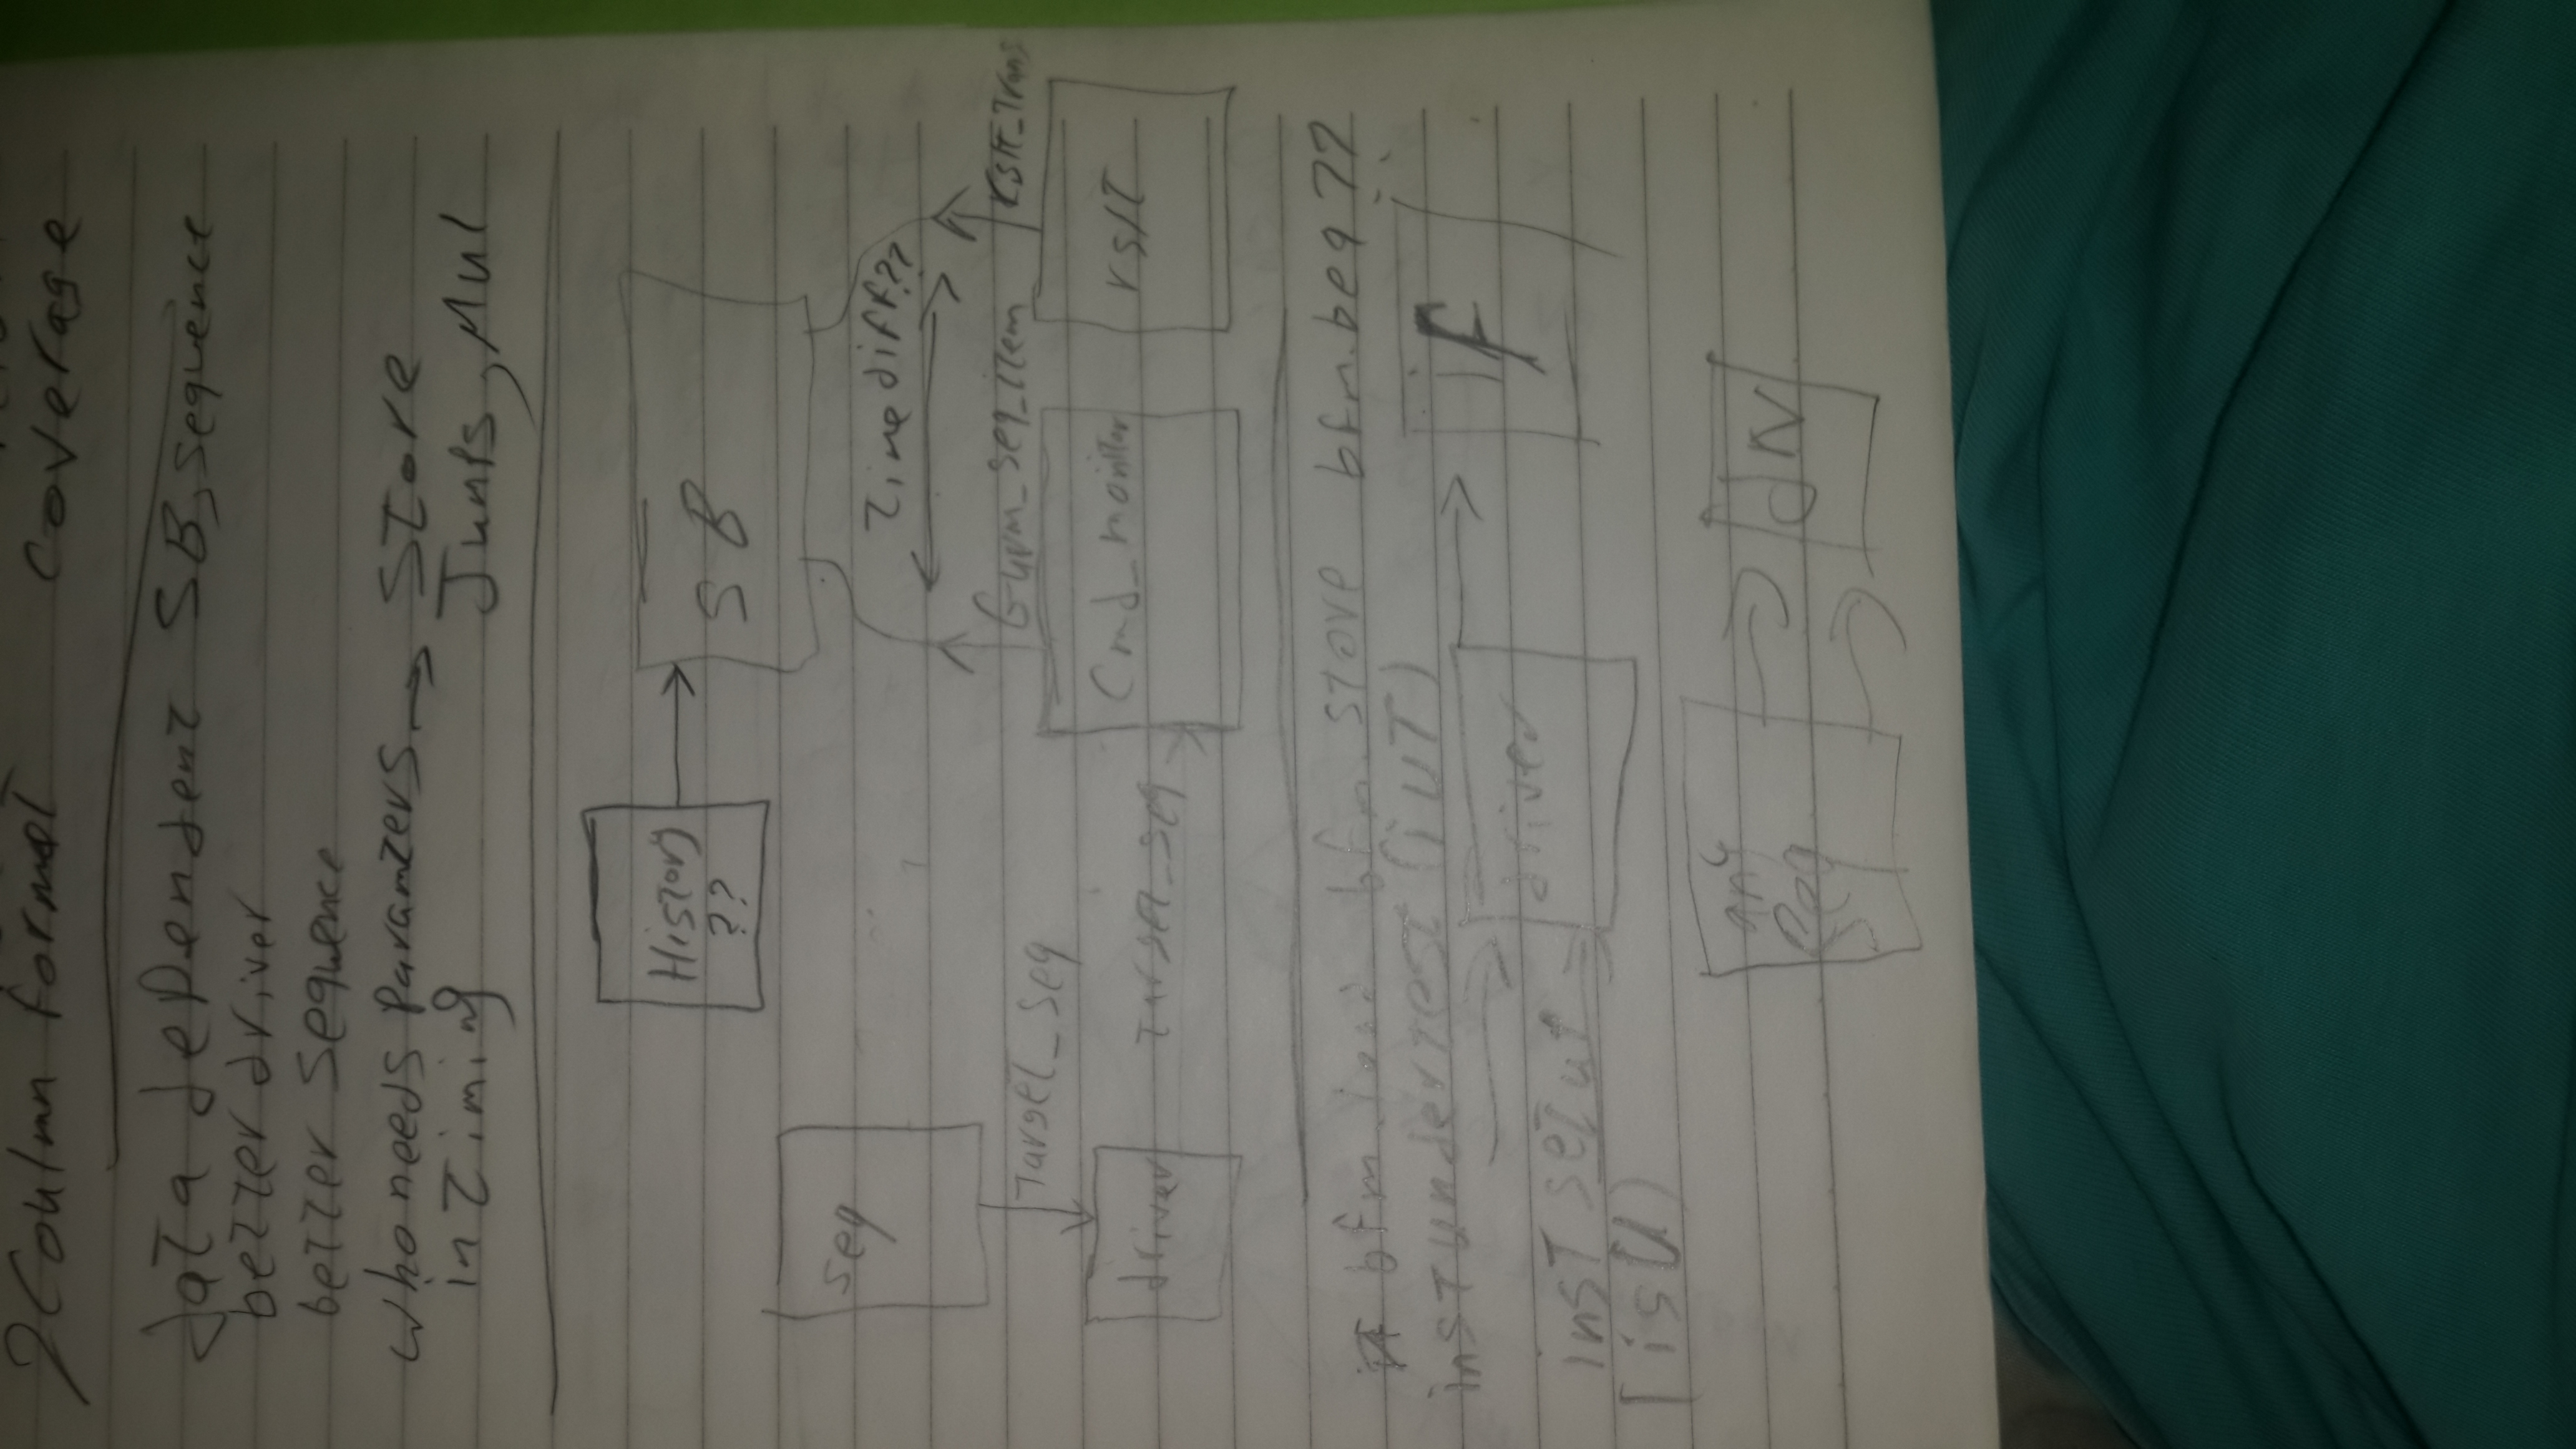 2 Coulmn format coverage
data dependent SB, sequence
better driver
better sequence
who needs Paramters → Store
in timing Jumps, Mul
History
??
SB
seq
Time diff??
Target_seq
G-uvm_seq_item
rslt_trans
driver
Target_seq
Cmd_monitor
rslt
bfm.load bfm.store bfm.beq ??
inst under test (iUT)
driver
if
inst setup
[isU)
any
seq
drv